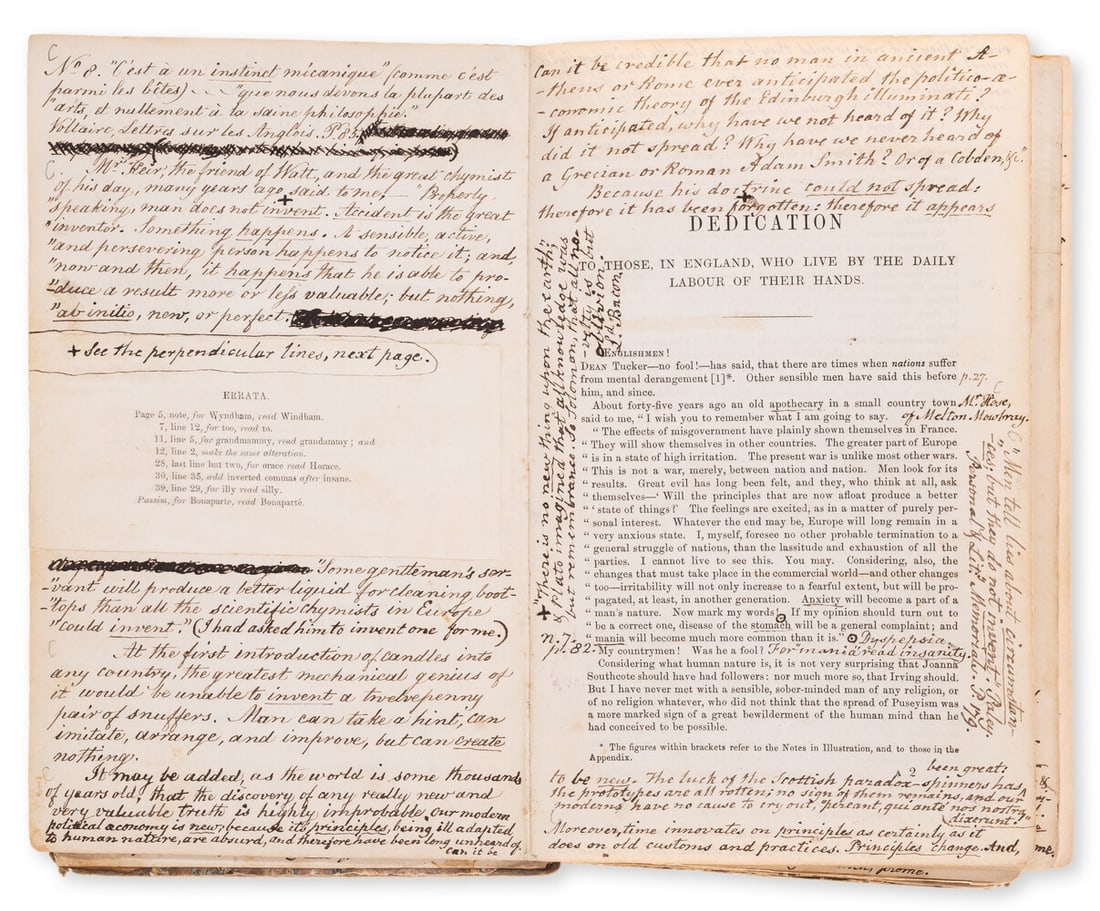 No. 8. "C'est à un instinct mécanique" (comme c'est
parmi les bêtes) — "que nous devons la plupart des
"arts, et nullement à la saine philosophie."
Voltaire, Lettres sur les Anglois. P. 85.
Mr. Keir, the friend of Watt, and the great chymist
of his day, many years ago, said to me, — "Properly
"speaking, man does not invent. Accident is the great
"inventor. Something happens. A sensible, active,
"and persevering person happens to notice it; and,
"now and then, it happens that he is able to pro-
"duce a result more or less valuable; but nothing,
"ab initio, new, or perfect.
+ See the perpendicular lines, next page.
ERRATA.
Page 5, note, for Wyndham, read Windham.
7, line 12, for too, read to.
11, line 5, for grandmammy, read grandammy; and
12, line 2, make the same alteration.
28, last line but two, for orace read Horace.
30, line 35, add inverted commas after insane.
39, line 29, for illy read silly.
Passim, for Bonaparte, read Bonaparté.
"Some gentleman's ser-
"vant will produce a better liquid for cleaning boot-
"tops than all the scientific chymists in Europe
"could invent." (I had asked him to invent one for me.)
At the first introduction of candles into
any country, the greatest mechanical genius of
it would be unable to invent a twelvepenny
pair of snuffers. Man can take a hint, can
imitate, arrange, and improve, but can create
nothing.
It may be added, as the world is some thousands
of years old, that the discovery of any really new and
very valuable truth is highly improbable. Our modern
political economy is new, because its principles, being ill adapted
to human nature, are absurd, and therefore have been long unheard of.
Can it be
Can it be credible that no man in ancient A-
-thens or Rome ever anticipated the politico-œ-
-conomic theory of the Edinburgh illuminati?
If anticipated, why have we not heard of it? Why
did it not spread? Why have we never heard of
a Grecian or Roman Adam Smith? Or of a Cobden, &c.
Because his doctrine could not spread:
therefore it has been forgotten: therefore it appears
DEDICATION
TO THOSE, IN ENGLAND, WHO LIVE BY THE DAILY
LABOUR OF THEIR HANDS.
+ "There is no new thing upon the earth;"
& Plato imagined that all knowledge was
but remembrance. So Solomon, that all no-
-velty is but
oblivion.
Ld. Bacon.
ENGLISHMEN!
DEAN Tucker—no fool!—has said, that there are times when nations suffer
from mental derangement [1]*. Other sensible men have said this before p. 27.
him, and since.
About forty-five years ago an old apothecary in a small country town Mr. Rose,
said to me, "I wish you to remember what I am going to say. of Melton Mowbray.
"The effects of misgovernment have plainly shown themselves in France.
"They will show themselves in other countries. The greater part of Europe
"is in a state of high irritation. The present war is unlike most other wars.
"This is not a war, merely, between nation and nation. Men look for its
"results. Great evil has long been felt, and they, who think at all, ask
"themselves—'Will the principles that are now afloat produce a better
"'state of things?' The feelings are excited, as in a matter of purely per-
"sonal interest. Whatever the end may be, Europe will long remain in a
"very anxious state. I, myself, foresee no other probable termination to a
"general struggle of nations, than the lassitude and exhaustion of all the
"parties. I cannot live to see this. You may. Considering, also, the
"changes that must take place in the commercial world—and other changes
"too—irritability will not only increase to a fearful extent, but will be pro-
"pagated, at least, in another generation. Anxiety will become a part of
"man's nature. Now mark my words! If my opinion should turn out to
"be a correct one, disease of the stomach will be a general complaint; and
n. 7. "mania will become much more common than it is." Dyspepsia.
p. 32. My countrymen! Was he a fool? For mania read insanity.
Considering what human nature is, it is not very surprising that Joanna
Southcote should have had followers: nor much more so, that Irving should.
But I have never met with a sensible, sober-minded man of any religion, or
of no religion whatever, who did not think that the spread of Puseyism was
a more marked sign of a great bewilderment of the human mind than he
had conceived to be possible.
* The figures within brackets refer to the Notes in Illustration, and to those in the
Appendix.
"Men tell lies about circumstan-
-ces; but they do not invent." Paley.
Personal & Lit. Memorials. P. 179.
2 been great:
to be new. The luck of the Scottish paradox-spinners has
the prototypes are all rotten; no sign of them remains, and our
moderns have no cause to cry out, "pereant, qui ante nos nostra
dixerunt."
Moreover, time innovates on principles as certainly as it
does on old customs and practices. Principles change. And,
me.
prome.